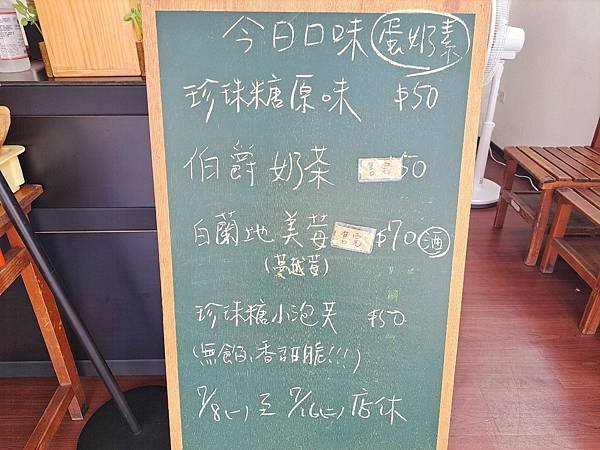 今日口味 蛋奶素
珍珠糖原味 $50
伯爵奶茶 售完 50
白蘭地美莓 售完 $70 酒
(蔓越莓)
珍珠糖小泡芙 $50
(無餡,香甜脆!!!)
7/8(一)至7/16(二)店休